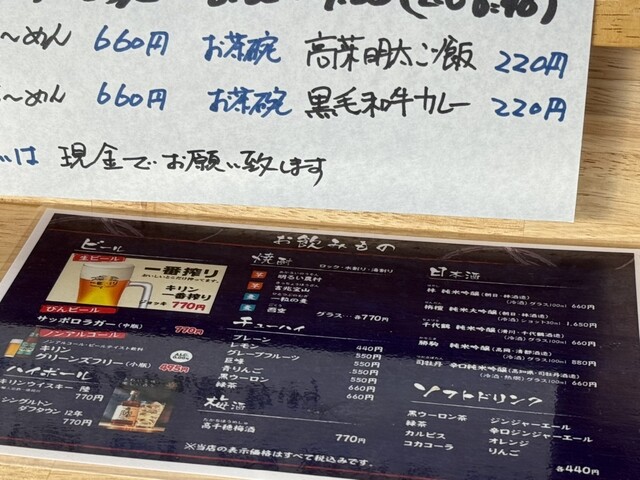 〜めん 660円 お茶碗 高菜明太ご飯 220円
〜めん 660円 お茶碗 黒毛和牛カレー 220円
は 現金でお願い致します
お飲みもの
ビール
生ビール
一番搾り
おいしいとこだけ搾ってます。
キリン
一番搾り
ジョッキ 770円
びんビール
サッポロラガー(中瓶) 770円
ノンアルコール
キリン
グリーンズフリー(小瓶) 495円
ハイボール
キリンウイスキー 陸
770円
シングルトン
ダフタウン 12年
770円
焼酎
ロック・水割り・湯割り
芋 明るい農村
芋 富乃宝山
麦 一粒の麦
グラス…各770円
チューハイ
プレーン 440円
レモン 550円
グレープフルーツ 550円
巨峰 550円
青りんご 550円
黒ウーロン 660円
緑茶 660円
梅酒
高千穂梅酒 770円
※当店の表示価格はすべて税込みです。
日本酒
純米吟醸(朝日・朝日酒造)
(冷酒)グラス(100ml) 660円
純米大吟醸(朝日・朝日酒造)
1,650円
千代鶴 純米吟醸(滑川・千代鶴酒造)
(冷酒)グラス(100ml) 660円
勝駒 純米吟醸(高岡・清都酒造)
(冷酒)グラス(100ml) 880円
司牡丹 辛口純米吟醸(高知県・司牡丹酒造)
660円
ソフトドリンク
黒ウーロン茶
緑茶
カルピス
コカコーラ
ジンジャーエール
辛口ジンジャーエール
オレンジ
りんご
各440円